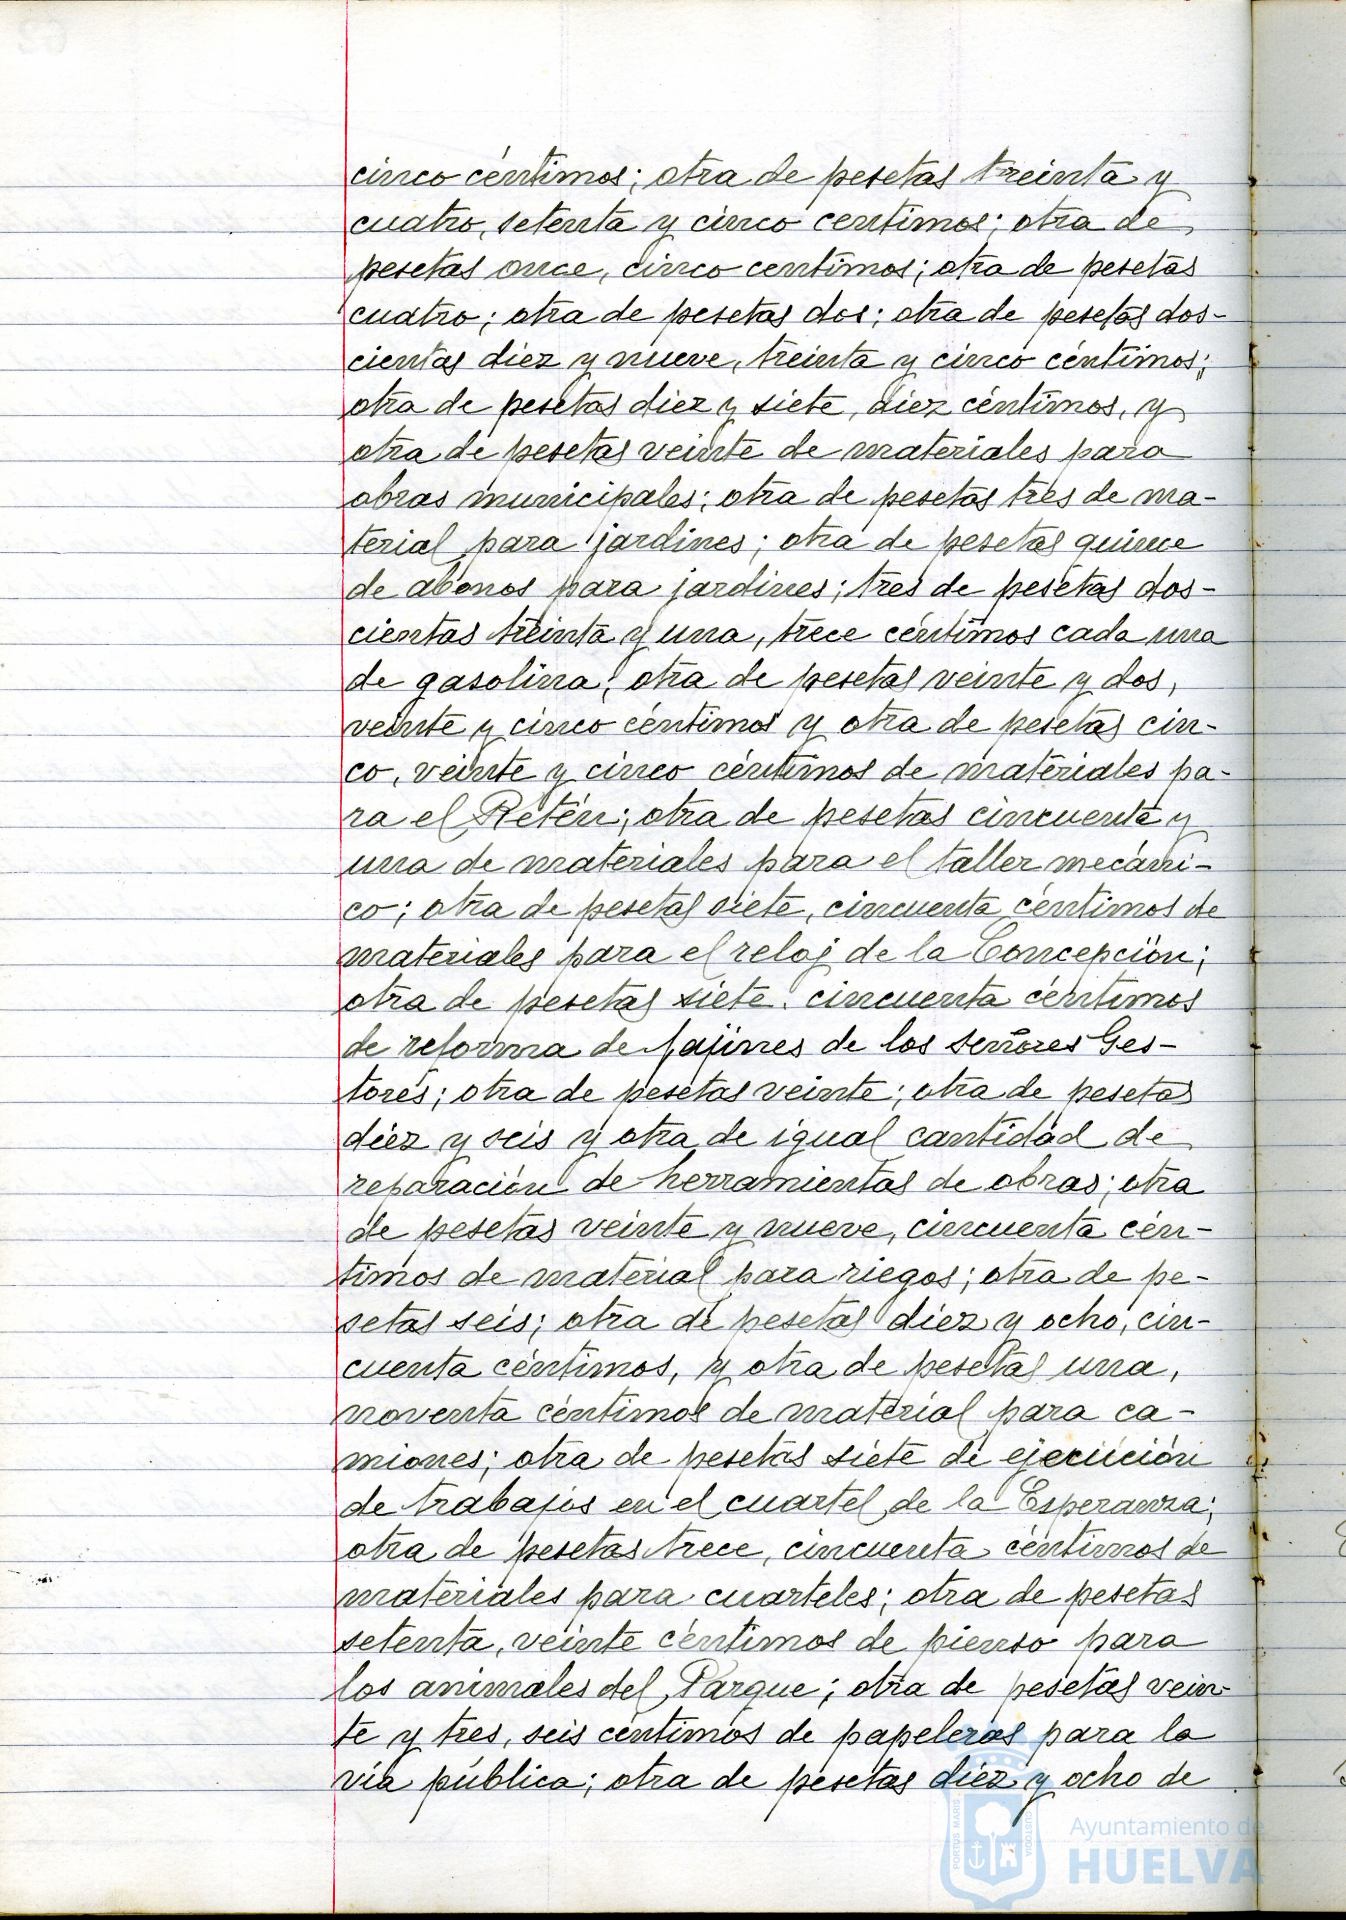 cinco céntimos; otra de pesetas treinta y
cuatro, setenta y cinco centimos; otra de
pesetas once, cinco centimos; otra de pesetas
cuatro; otra de pesetas dos; otra de pesetas dos-
cientas diez y nueve, treinta y cinco céntimos;
otra de pesetas diez y siete, diez céntimos, y
otra de pesetas veinte de materiales para
obras municipales; otra de pesetas tres de ma-
terial para jardines; otra de pesetas quince
de abonos para jardines; tres de pesetas dos-
cientas treinta y una, trece céntimos cada una
de gasolina; otra de pesetas veinte y dos,
veinte y cinco céntimos y otra de pesetas cin-
co, veinte y cinco céntimos de materiales pa-
ra el Retén; otra de pesetas cincuenta y
una de materiales para el taller mecáni-
co; otra de pesetas siete, cincuenta céntimos de
materiales para el reloj de la Concepción;
otra de pesetas siete, cincuenta céntimos
de reforma de fajines de los señores Ges-
tores; otra de pesetas veinte; otra de pesetas
diéz y seis y otra de igual cantidad de
reparación de herramientas de obras; otra
de pesetas veinte y nueve, cincuenta cén-
timos de material para riegos; otra de pe-
setas seis; otra de pesetas diez y ocho, cin-
cuenta céntimos, y otra de pesetas una,
noventa céntimos de material para ca-
miones; otra de pesetas siete de ejecución
de trabajos en el cuartel de la Esperanza;
otra de pesetas trece, cincuenta céntimos de
materiales para cuarteles; otra de pesetas
setenta, veinte céntimos de pienso para
los animales del Parque; otra de pesetas vein-
te y tres, seis céntimos de papeleras para la
vía pública; otra de pesetas diéz y ocho de
PORTUS MARIS
CUSTODIA
Ayuntamiento de
HUELVA